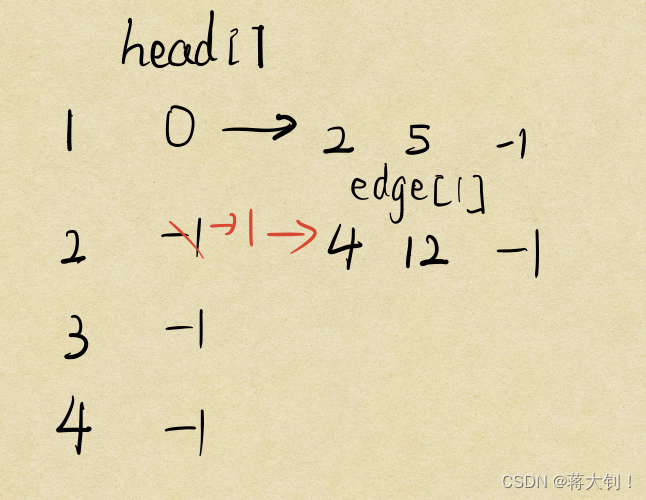 head[]
1 0 → 2 5 -1
edge[1]
2 -1 → 1 → 4 12 -1
3 -1
4 -1
CSDN @蒋大钊！